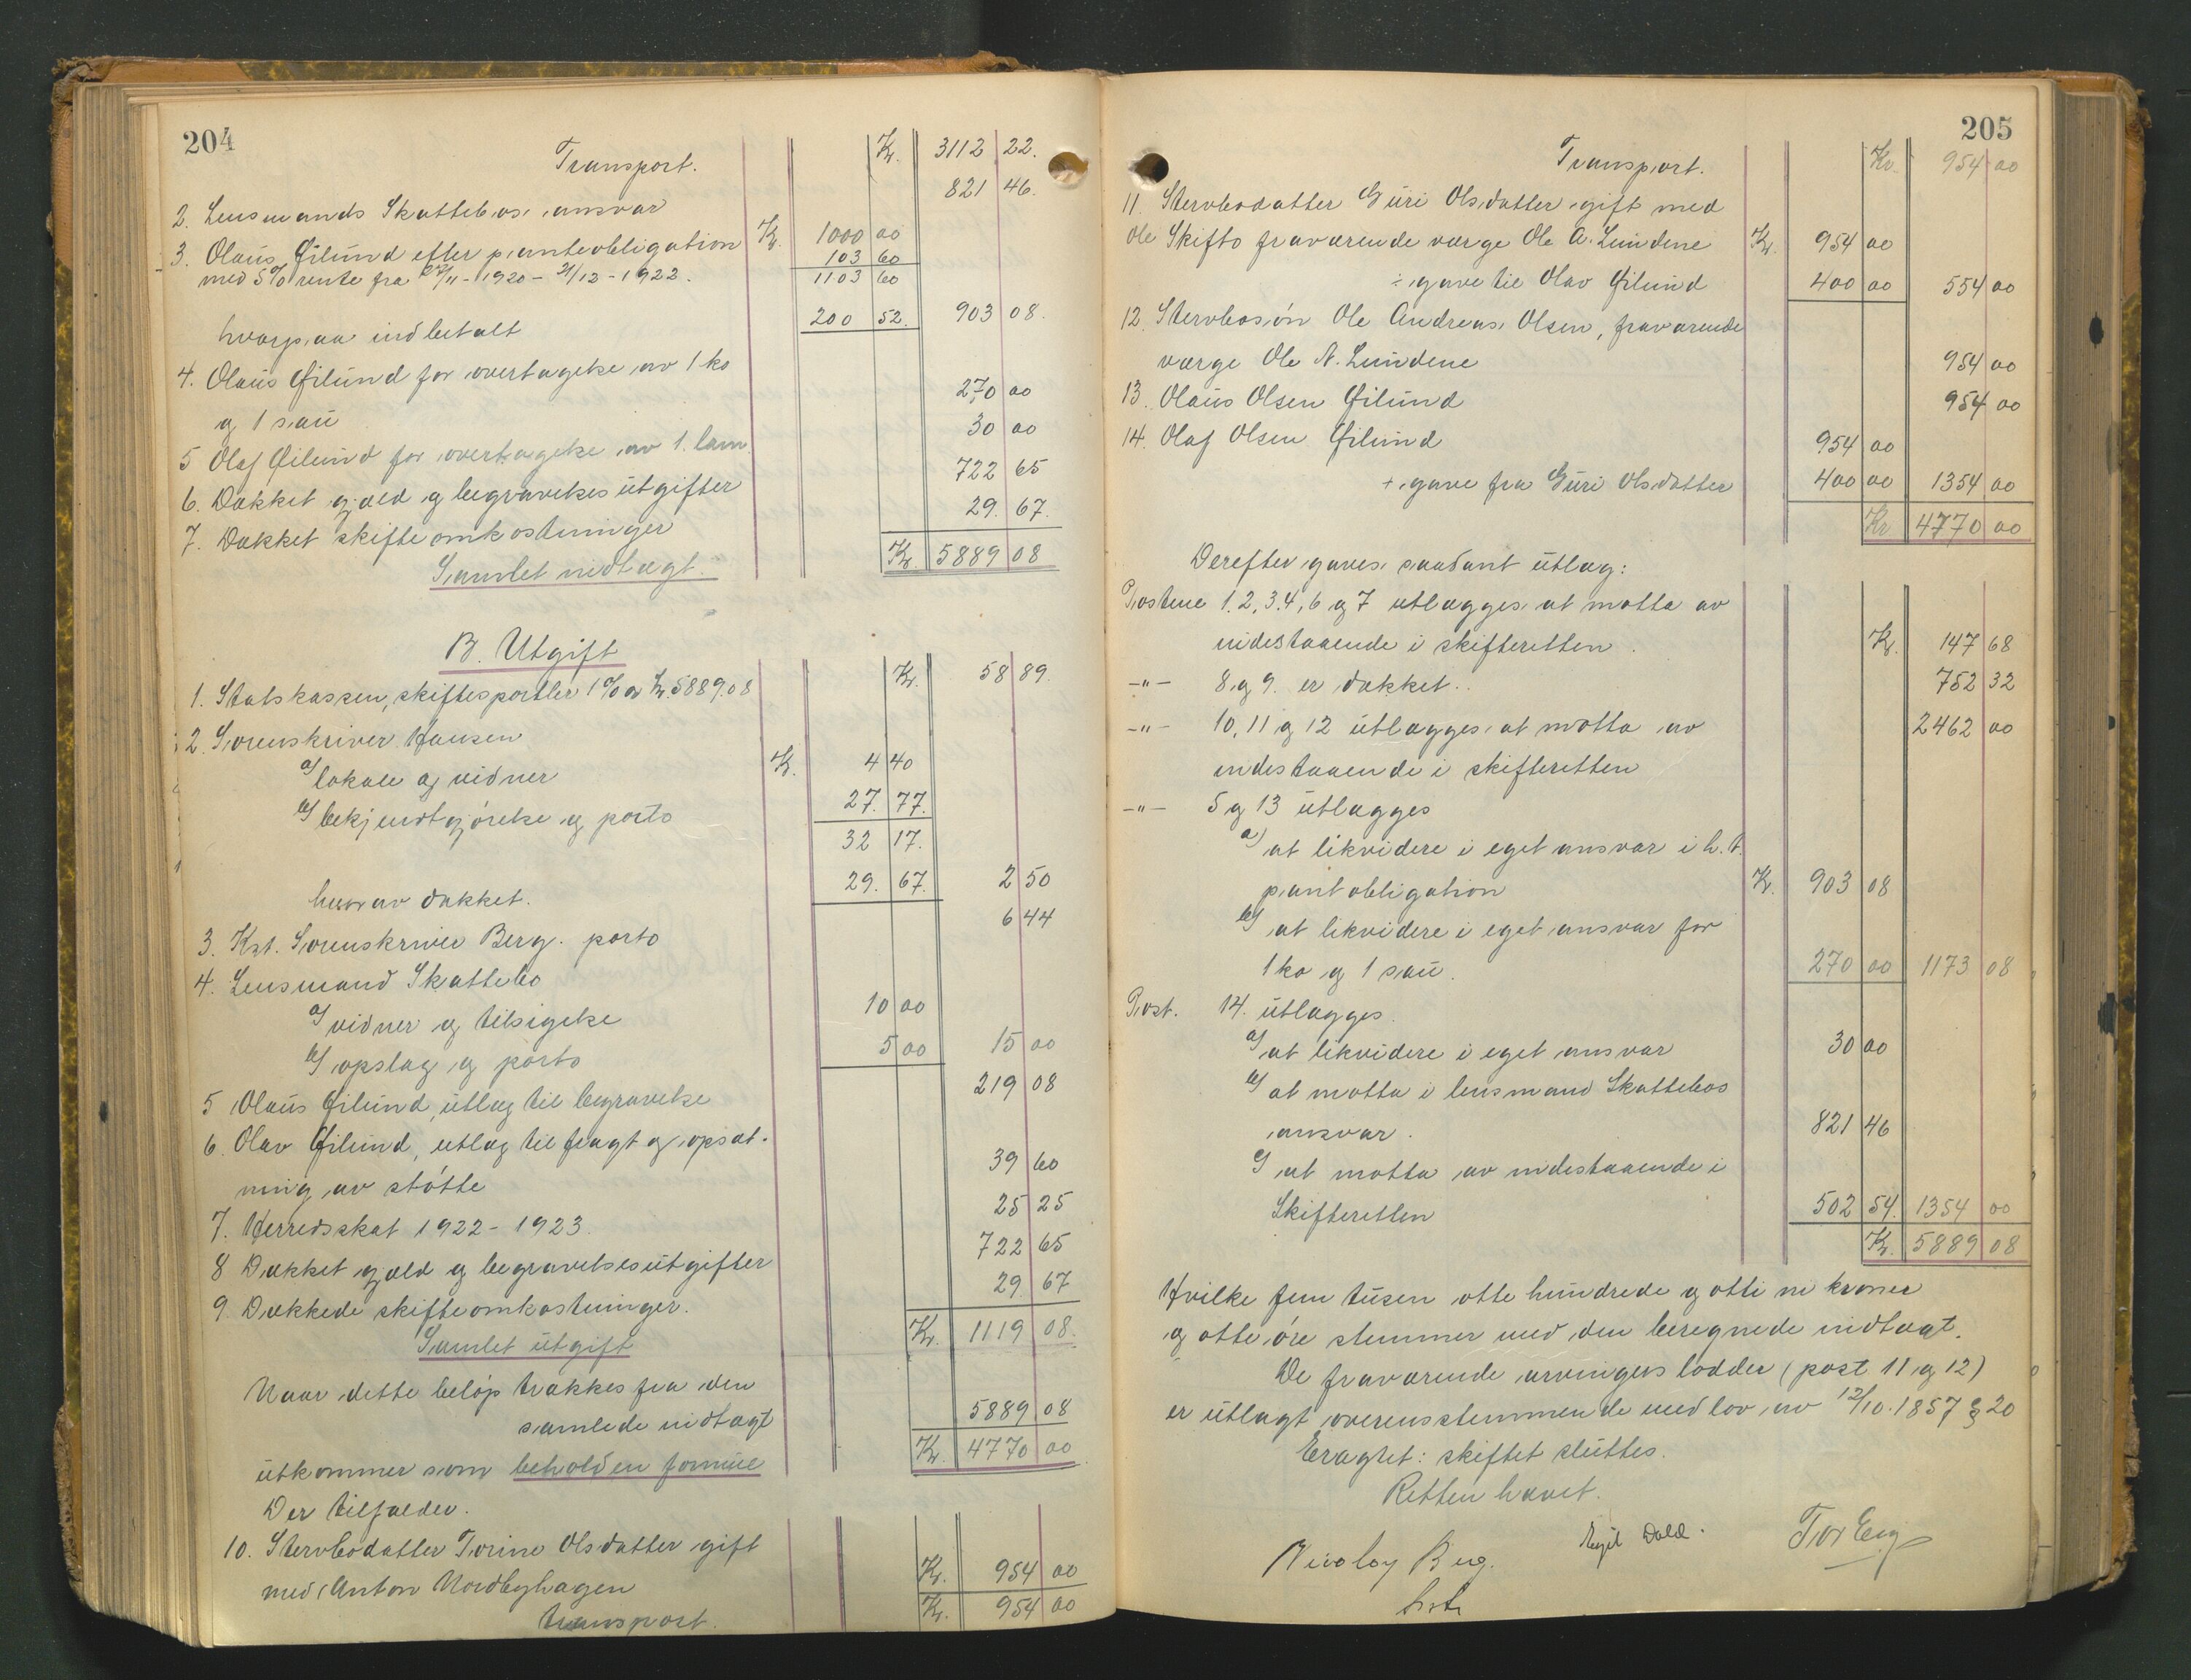 204
Transport. Kr. 3112 22.
2. Lensmands Skattebos ansvar 821 46.
3. Olaus Øilund efter panteobligation Kr. 1000 00
med 5% rente fra 27/11-1920 - 21/12-1922. 103 60
1103 60
hvorpaa indbetalt 200 52. 903 08.
4. Olaus Øilund for overtagelse av 1 ko
og 1 sau 270 00
5 Olaf Øilund for overtagelse av 1. lam 30 00
6. Dækket gjæld og begravelsesutgifter 722 65
7. Dækket skifteomkostninger 29. 67.
Samlet indtægt. Kr. 5889 08
B. Utgift
1. Statskassen, skiftesportler 1% av Kr. 5889.08 Kr. 58 89.
2. Sorenskriver Hansen
a/ lokale og vidner Kr. 4 40
b/ bekjendtgjørelse og porto 27. 77.
32 17.
hvorav dækket. 29. 67. 2 50
3. Kst. Sorenskriver Berg. porto 6 44
4. Lensmand Skattebo
a/ vidner og tilsigelse 10 00
b/ opslag og porto 5 00 15 00
5 Olaus Øilund, utlæg til begravelse 219 08
6. Olav Øilund, utlæg til fragt og opsæt-
ning av støtte 39 60
7. Herredsskat 1922 - 1923. 25 25
8 Dækket gjæld og begravelsesutgifter 722 65
9. Dækkede skifteomkostninger. 29 67
Samlet utgift Kr. 1119 08.
Naar dette beløp trækkes fra den
samlede indtægt 5889 08
utkommer som beholden formue Kr. 4770 00
Der tilfalder.
10. Stervbodatter Torine Olsdatter gift
med Anton Nordbyhagen Kr. 954 00
transport. Kr. 954 00
205
Transport. Kr. 954 00
11. Stervbodatter Guri Olsdatter gift med
Ole Skifto fraværende værge Ole A. Lundene Kr. 954 00
÷ gave til Olav Øilund 400 00 554 00
12. Stervbosøn Ole Andreas Olsen, fraværende
værge Ole A. Lundene 954 00
13. Olaus Olsen Øilund 954 00
14. Olaf Olsen Øilund 954 00
+ gave fra Guri Olsdatter 400 00 1354 00
Kr 4770 00
Derefter gaves saadant utlæg:
Postene 1.2,3.4,6 og 7 utlægges at motta av
indestaaende i skifteretten. Kr. 147 68
-"- 8 og 9. er dækket.. 752 32
-"- 10, 11 og 12 utlægges at motta av 2462 00
indestaaende i skifteretten
-"- 5 og 13 utlægges
a/ at likvidere i eget ansvar i h. t.
pantobligation Kr. 903 08
b/ at likvidere i eget ansvar for
1 ko og 1 sau. 270 00 1173 08
Post. 14. utlægges.
a/ at likvidere i eget ansvar 30 00
b/ at motta i lensmand Skattebos
ansvar. 821 46
c/ at motta av indestaaende i
Skifteretten 502 54. 1354 00
Kr. 5889 08
Hvilke fem tusen otte hundrede og otti ni kroner
og otte øre stemmer med den beregnede indtægt.
De fraværende arvingers lodder (post 11 og 12)
er utlagt overensstemmende med lov av 12/10. 1857 § 20
Eragtet: skiftet sluttes.
Retten hævet.
Nicolay Berg. Egil Dale. Tor Eng